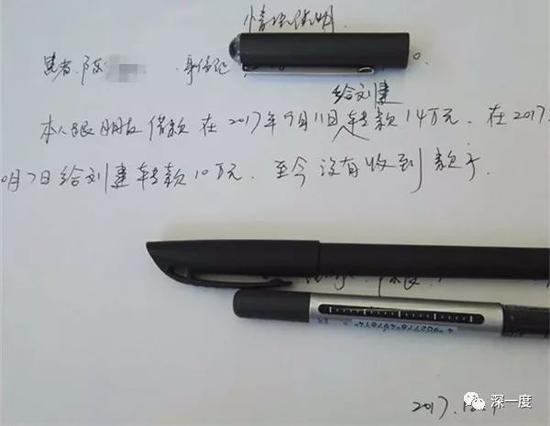 情况说明
患者 陈 身份证
给刘建
本人跟朋友借款 在2017年9月11日转款14万元. 在2017.
0月7日给刘建转款10万元. 至今没有收到款子.
2017.
深一度